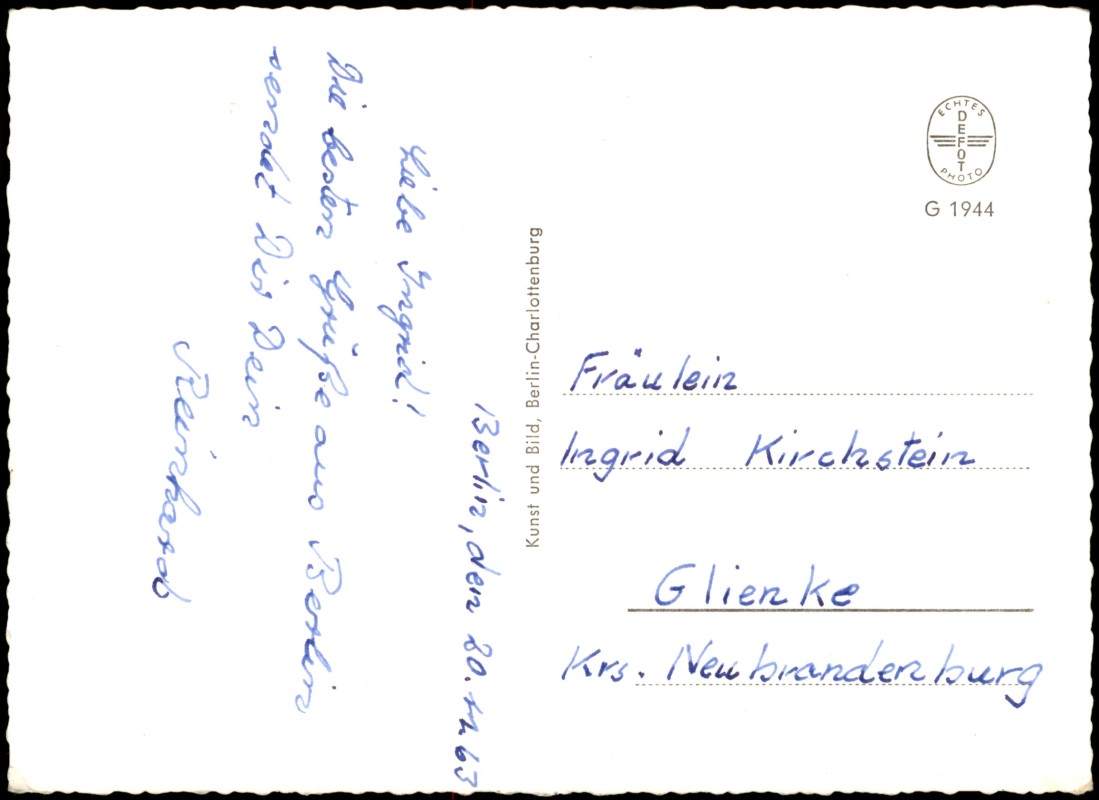 Berlin, den 20. 11. 63
Liebe Ingrid!
Die besten Grüße aus Berlin
sendet Dir Dein
Reinhard
Kunst und Bild, Berlin-Charlottenburg
ECHTES
DEFOT
PHOTO
G 1944
Fräulein
Ingrid Kirchstein
Glienke
Krs. Neubrandenburg